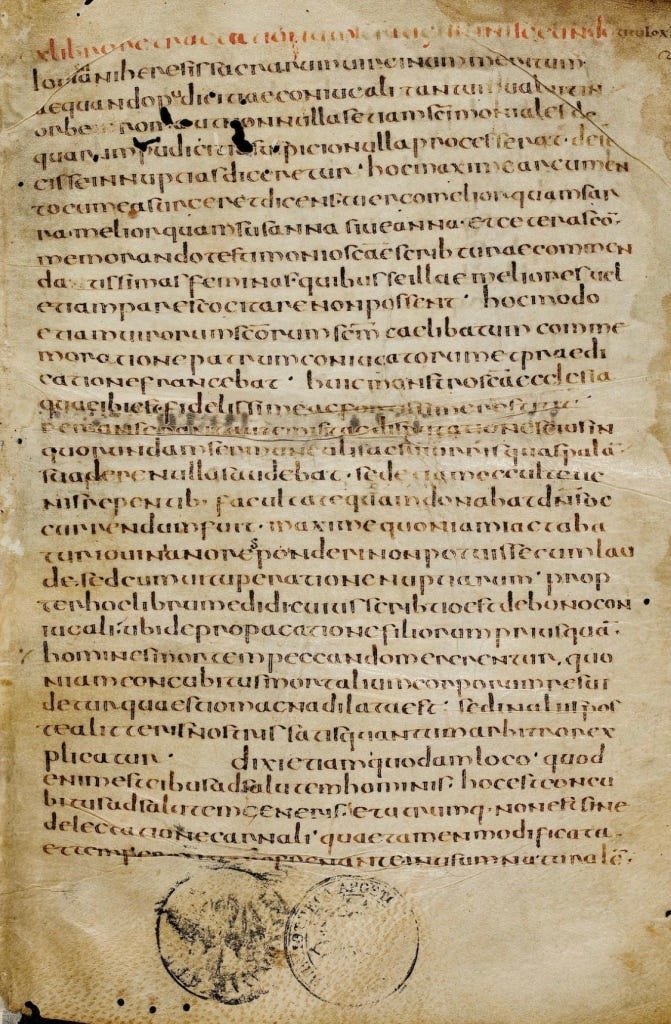 ex libro retractationum
iouiniani heresis sacrarum uirginum meritum
aequando pudicitiae coniugali tantum ualuit in
orbe roma ut nonnullas etiam scimoniales de
quarum pudicitia suspicio nulla processerat dei
cisse in nuptias diceretur · hoc maxime argumen
to cum eas urceret dicens · tu ergo melior quam sar
ra · melior quam susanna siue anna · et ceteras cō
memorando testimonio scae scribturae commen
datissimas feminas · quibus se illae meliores uel
etiam pares cogitare non possent · hoc modo
etiam uirorum scorum scm caelibatum comme
moratione patrum coniugatorum et praedi
catione frangebat · huic monstro sca ecclesia
quae ibi est fidelissime ac
disputationes eius in
quorundam sermunculis ac susurris quas palā
suadere nullus audebat · sed etiam occulte ue
nis repentib · facultate quam donabat dns oc
currendum fuit · maxime quoniam iactaba
tur iouiniano responderi non potuisse cum lau
de · sed cum uituperatione nuptiarum · prop
ter hoc librum edidi cuius scribtio est de bono con
iugali · ubi de propagatione filiorum priusquā
homines mortem peccando mererentur · quo
niam concubitus mortalium corporum res ui
detur quaestio magna dilata est · sed in aliis pos
tea litteris nostris satis quantum arbitror ex
plicatur · dixi etiam quodam loco · quod
enim est cibus ad salutem hominis · hoc est concu
bitus ad salutem generis · et utrumq · non est sine
delectatione carnali · quae tamen modificata
et in usum naturalē ·